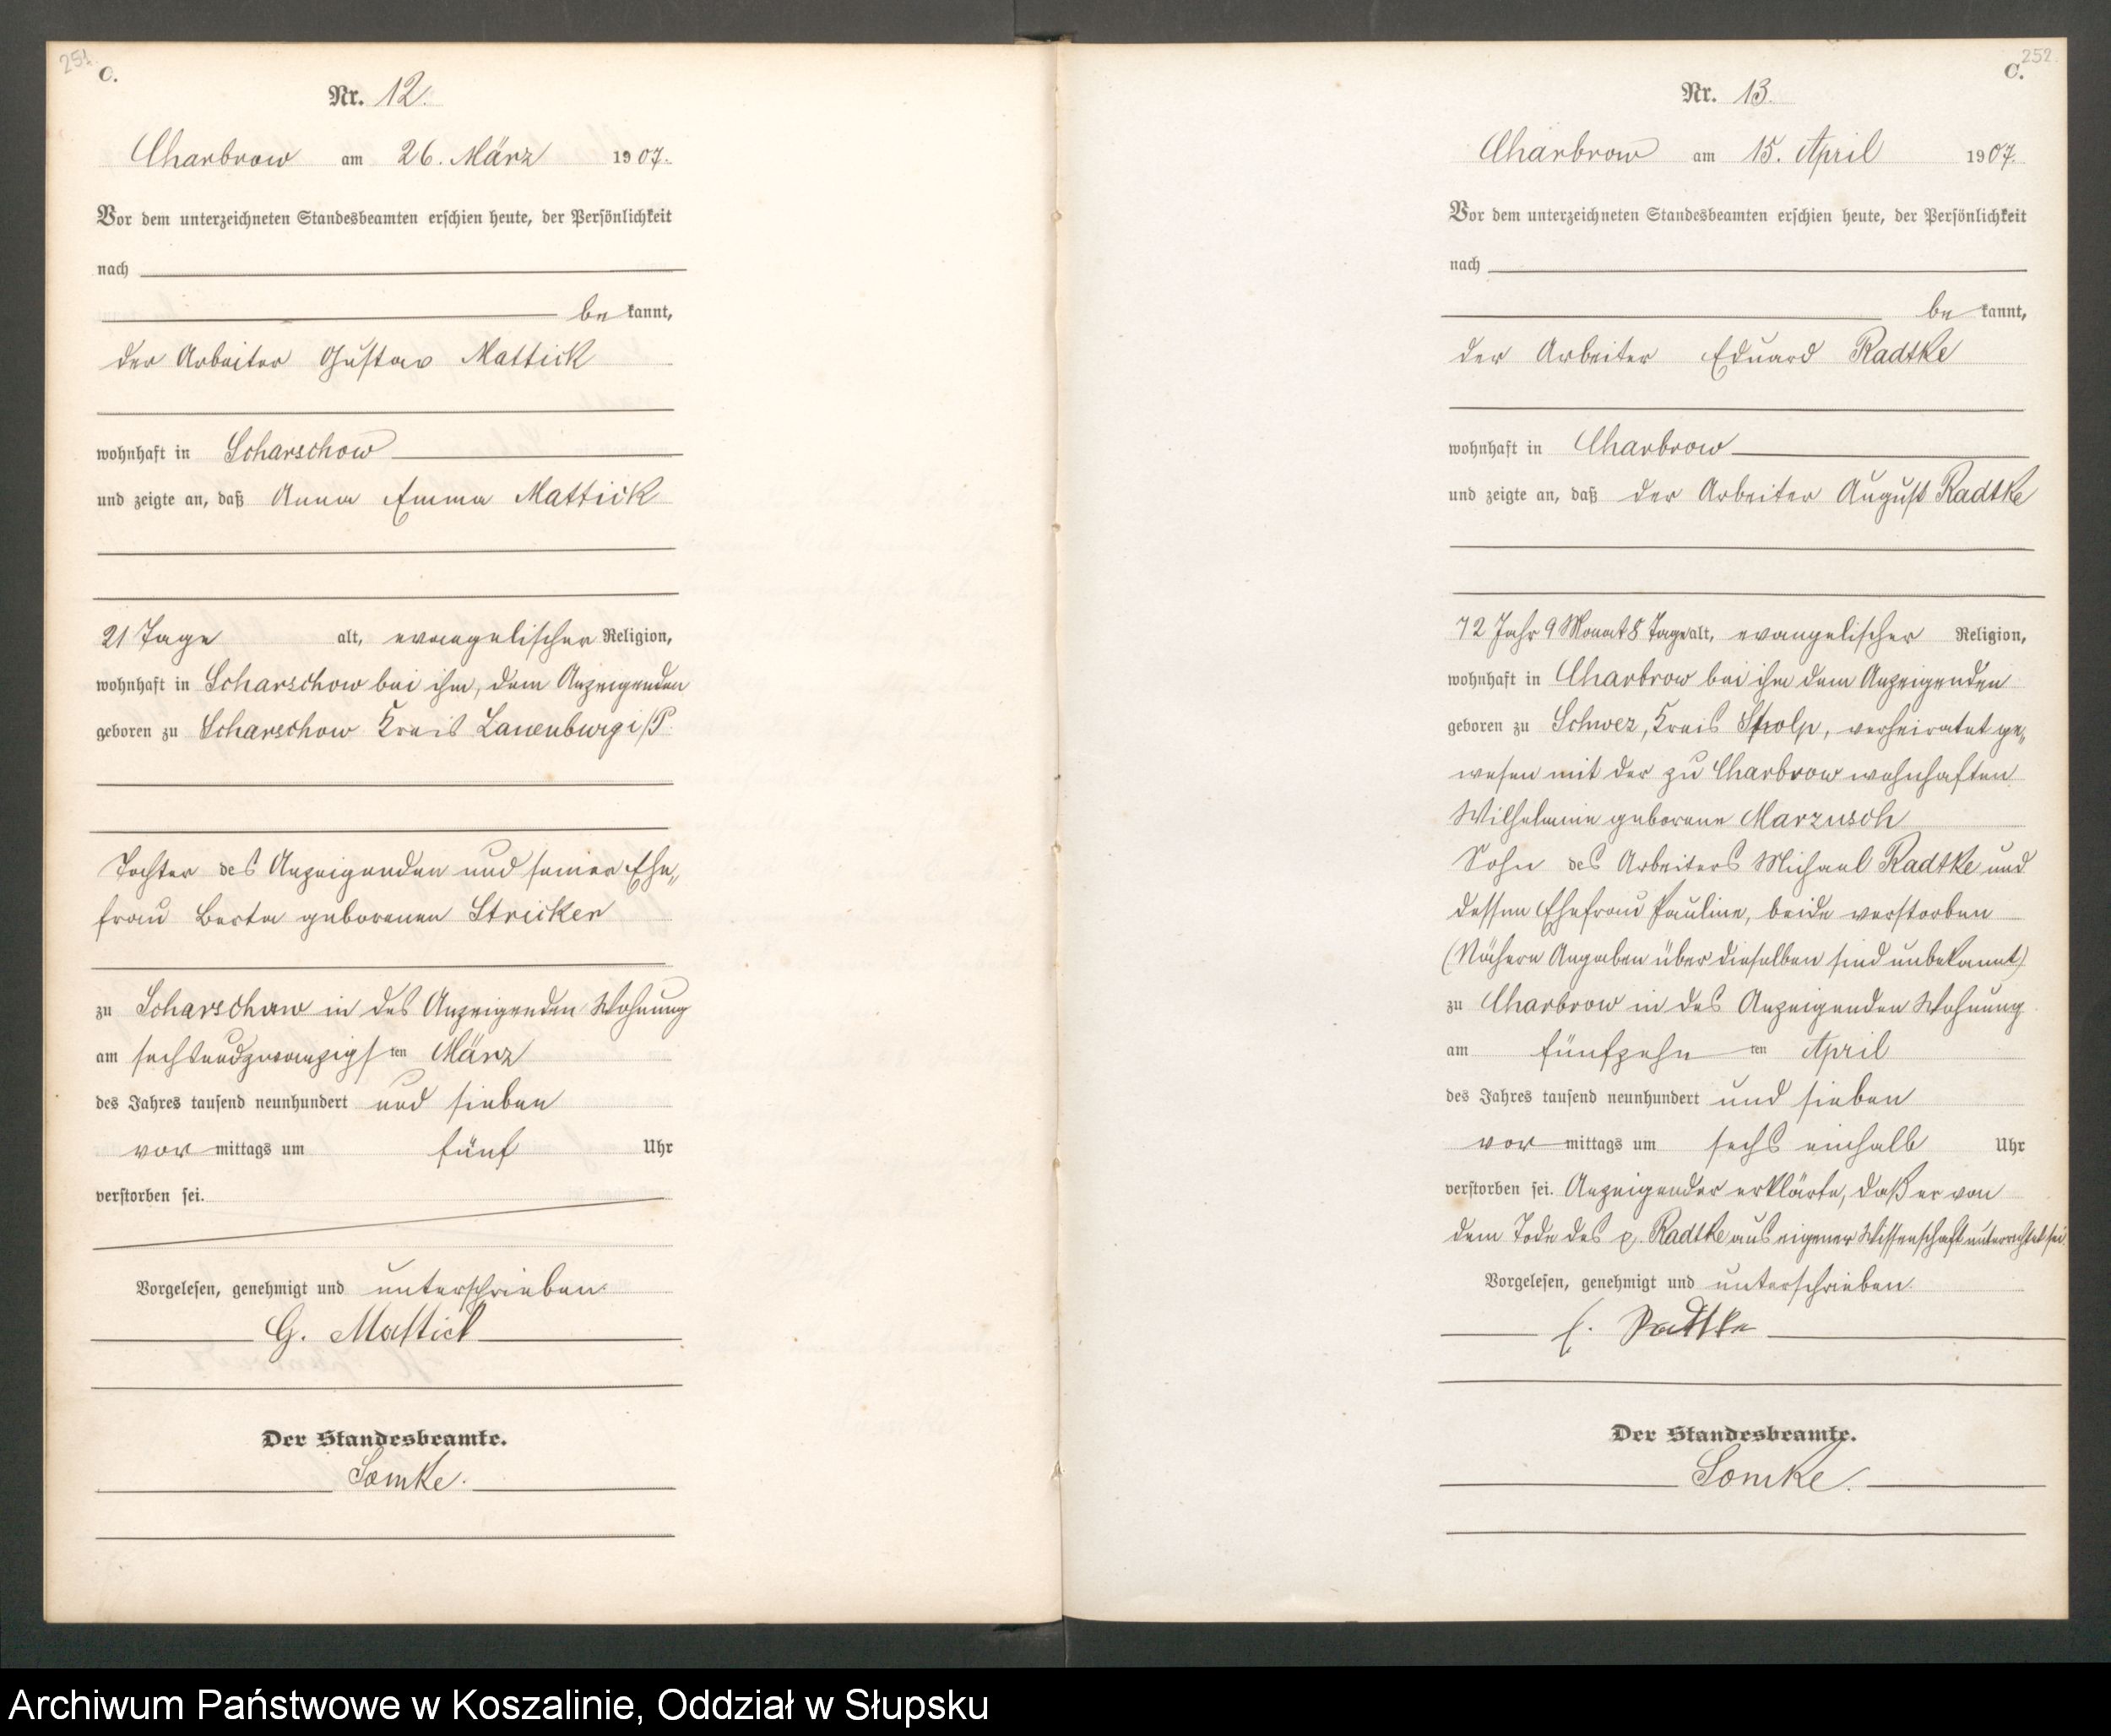 251.
C.
Nr. 12.
Charbrow am 26. März 1907.
Vor dem unterzeichneten Standesbeamten erschien heute, der Persönlichkeit
nach
be kannt,
der Arbeiter Gustav Mattick
wohnhaft in Scharschow
und zeigte an, daß Anna Emma Mattick
21 Tage alt, evangelischer Religion,
wohnhaft in Scharschow bei ihm, dem Anzeigenden
geboren zu Scharschow Kreis Lauenburg i/P.
Tochter des Anzeigenden und seiner Ehe„
frau Berta geborenen Stricker
zu Scharschow in des Anzeigenden Wohnung
am sechsundzwanzigsten März
des Jahres tausend neunhundert und sieben
vor mittags um fünf Uhr
verstorben sei.
Vorgelesen, genehmigt und unterschrieben.
G. Mattick
Der Standesbeamte.
Lomke.
252.
C.
Nr. 13.
Charbrow am 15. April 1907.
Vor dem unterzeichneten Standesbeamten erschien heute, der Persönlichkeit
nach
be kannt,
der Arbeiter Eduard Radtke
wohnhaft in Charbrow
und zeigte an, daß der Arbeiter August Radtke
72 Jahr 9 Monat 8 Tage alt, evangelischer Religion,
wohnhaft in Charbrow bei ihm dem Anzeigenden
geboren zu Schwez, Kreis Stolp, verheiratet ge„
wesen mit der zu Charbrow wohnhaften
Wilhelmine geborene Marzusch
Sohn des Arbeiters Michael Radtke und
dessen Ehefrau Pauline, beide verstorben
(Nähere Angaben über dieselben sind unbekannt)
zu Charbrow in des Anzeigenden Wohnung
am fünfzehn ten April
des Jahres tausend neunhundert und sieben
vor mittags um sechs einhalb Uhr
verstorben sei. Anzeigender erklärte, daß er von
dem Tode des p. Radtke aus eigener Wissenschaft unterrichtet sei
Vorgelesen, genehmigt und unterschrieben.
E. Radtke
Der Standesbeamte.
Lomke.
Archiwum Państwowe w Koszalinie, Oddział w Słupsku